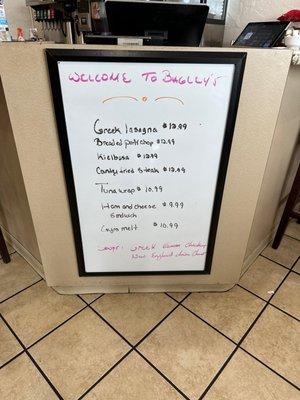 Welcome To Baglly's
Greek lasagna $12.99
Breaded pork chop $12.99
Kielbasa $12.99
Country fried Steak $12.99
Tuna wrap $10.99
Ham and cheese $9.99
Sandwich
Gyro melt $10.99
Soups: Greek Lemon Chicken
New England clam Chowder